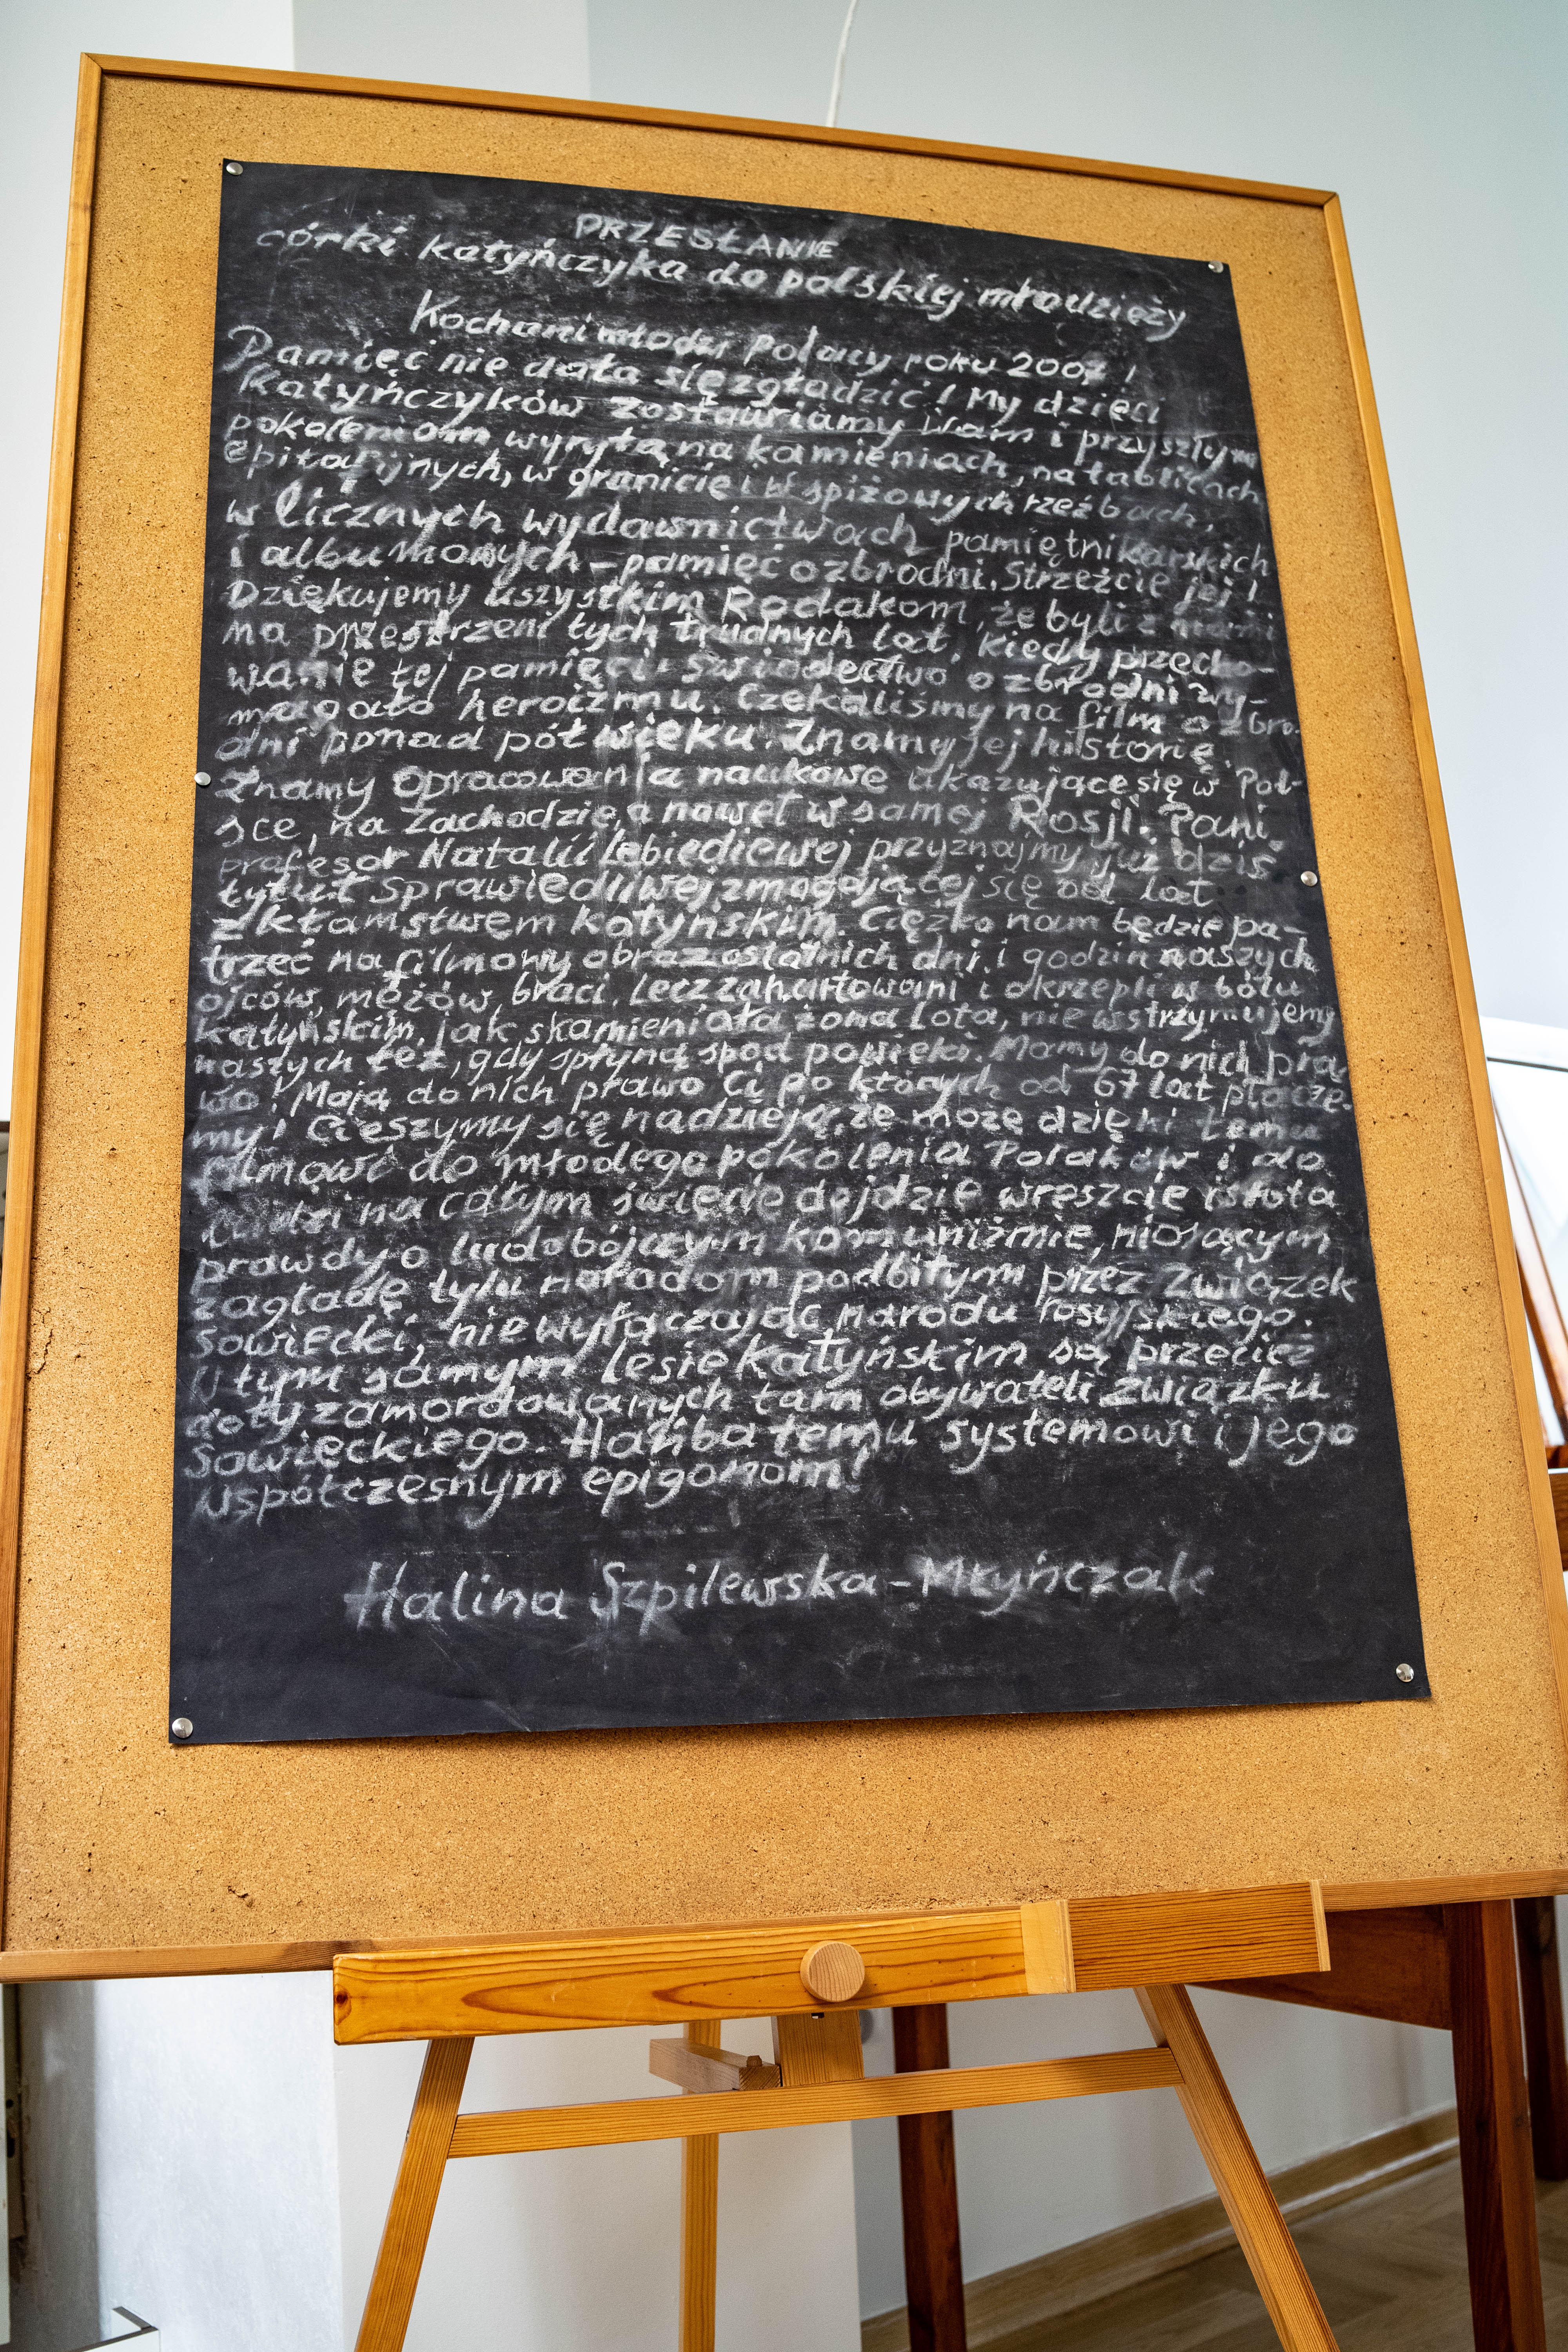 PRZESŁANIE
córki katyńczyka do polskiej młodzieży
Kochani młodzi Polacy roku 2007!
Pamięć nie dała się zgładzić! My dzieci
Katyńczyków zostawiamy Wam i przyszłym
pokoleniom wyrytą na kamieniach, na tablicach
epitafijnych, w granicie i w spiżowych rzeźbach,
w licznych wydawnictwach pamiętnikarskich
i albumowych – pamięć o zbrodni. Strzeżcie jej!
Dziękujemy wszystkim Rodakom, że byli z nami
na przestrzeni tych trudnych lat, kiedy przecho-
wanie tej pamięci i świadectwo o zbrodni wy-
magało heroizmu. Czekaliśmy na film o zbro-
dni ponad pół wieku. Znamy jej historię.
Znamy opracowania naukowe ukazujące się w Pol-
sce, na Zachodzie, a nawet w samej Rosji. Pani
profesor Natalii Lebiediewej przyznajmy już dziś
tytuł Sprawiedliwej, zmagającej się od lat
z kłamstwem katyńskim. Ciężko nam będzie pa-
trzeć na filmowy obraz ostatnich dni i godzin naszych
ojców, mężów, braci. Lecz zahartowani i okrzepli w bólu
katyńskim, jak skamieniała żona Lota, nie wstrzymujemy
naszych łez, gdy spłyną spod powieki. Mamy do nich pra-
wo! Mają do nich prawo Ci po których od 67 lat płacze-
my! Cieszymy się nadzieją, że może dzięki temu
filmowi do młodego pokolenia Polaków i do
ludzi na całym świecie dojdzie wreszcie istota
prawdy o ludobójczym komuniźmie, niosącym
zagładę tylu narodom podbitym przez Związek
Sowiecki, nie wyłączając narodu rosyjskiego.
W tym samym lesie Katyńskim są przecież
doły zamordowanych tam obywateli Związku
Sowieckiego. Hańba temu systemowi i jego
współczesnym epigonom!
Halina Szpilewska-Młyńczak